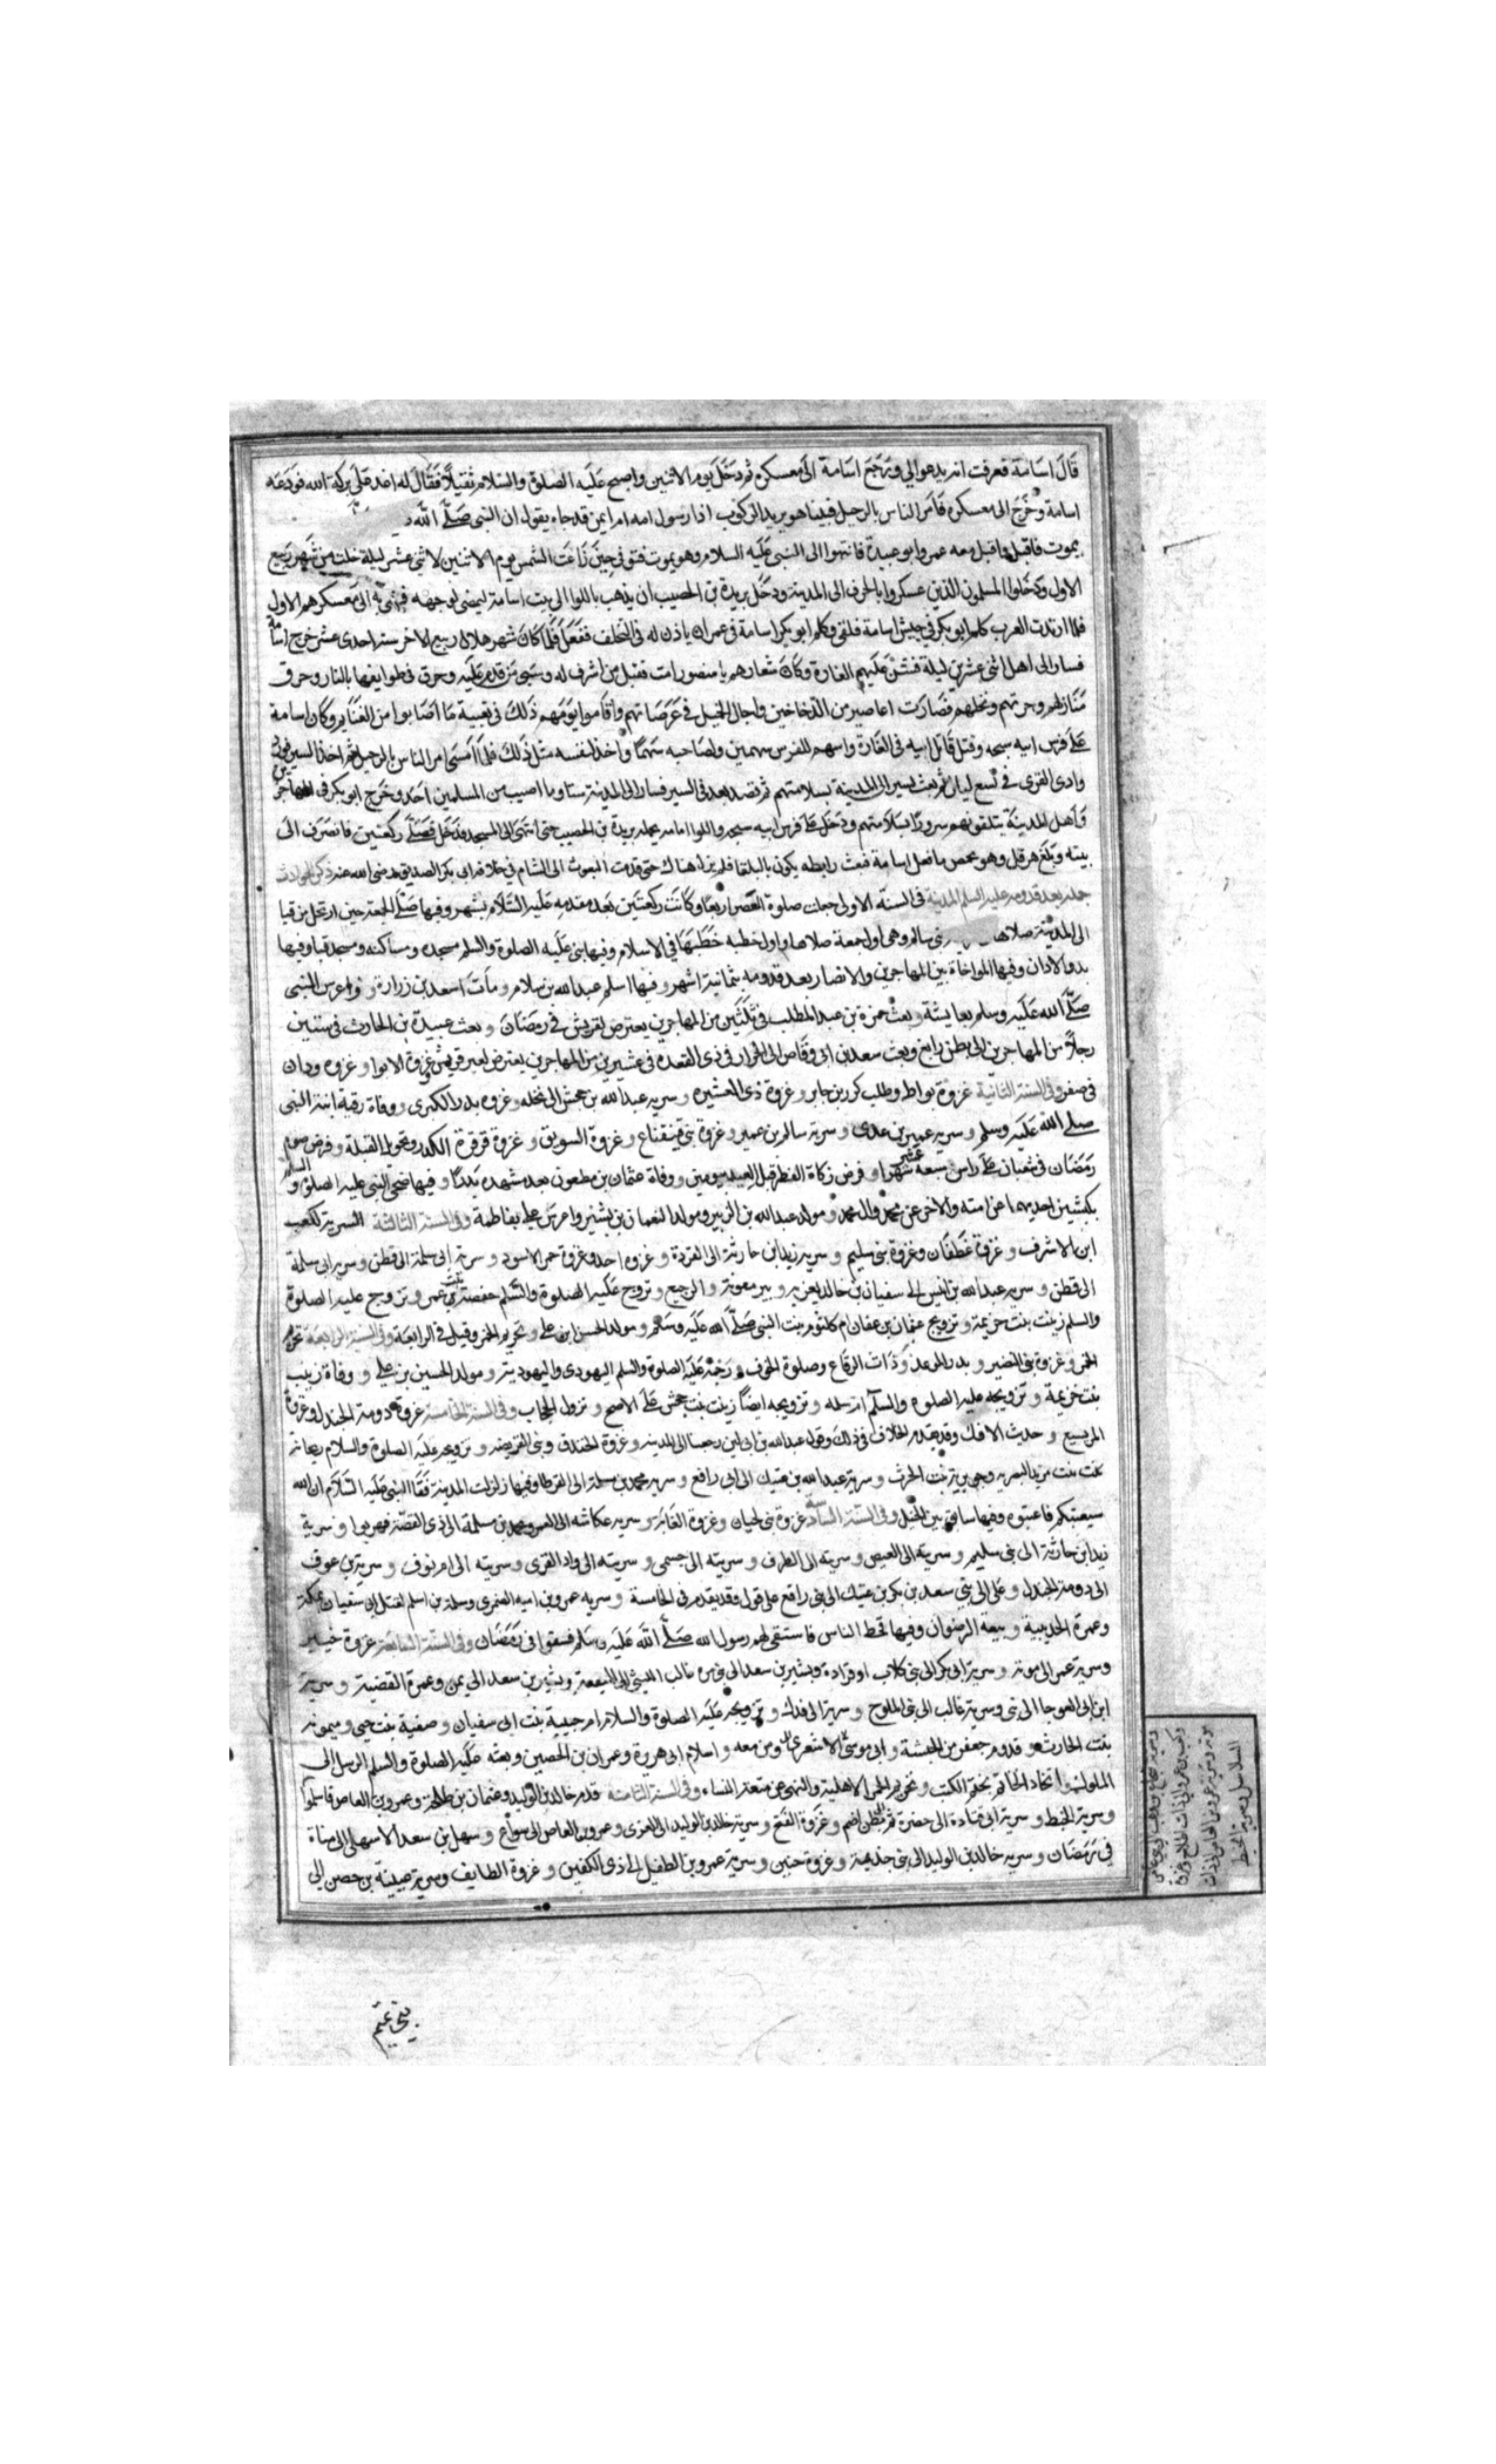 قال اسامة فعرفت انه يدعو لي ورجع اسامة الى معسكره ثم دخل يوم الاثنين واصبح عليه الصلوة والسلام فقال له اغد على بركة الله فودعه
اسامة وخرج الى معسكره فامر الناس بالرحيل فبينا هو يريد الركوب اذا رسول امه ام ايمن قد جاه يقول ان النبي صلى الله
يموت فاقبل واقبل معه عمر وابو عبيدة فانتهوا الى النبي عليه السلام وهو يموت فتوفي حين زاغت الشمس يوم الاثنين لاثنتي عشر ليلة خلت من شهر ربيع
الاول ودخلوا المسلمون الذين عسكروا بالجرف الى المدينة ودخل بريدة بن الحصيب ان يذهب باللوا الى بيت اسامة ليمضي لوجهه فمضى به الى معسكرهم الاول
فلما ارتدت العرب كلم ابو بكر في جيش اسامة فلقى وكلم ابو بكر اسامة في عمر ان ياذن له في التخلف ففعل فلما كان شهر هلال ربيع الاخر سنة احدى عشر خرج اسامة
فسار الى اهل ابنى عشرين ليلة فشن عليهم الغارة وكان شعارهم يا منصور امت فقتل من اشرف له وسبى من قدر عليه وحرق في طوايفها بالنار وحرق
منازلهم وحرثهم ونخلهم فصارت اعاصير من الدخاخين واجال الخيل في عرصاتهم واقاموا يومهم ذلك في تعبية ما اصابوا من الغنايم وكان اسامة
على فرس ابيه سبحه وقتل قاتل ابيه في الغارة واسهم للفرس سهمين ولصاحبه سهما واخذ لنفسه مثل ذلك فلما امسى امر الناس بالرحيل ثم اخذ السير
وادى القرى في تسع ليال ثم بعث بشيرا الى المدينة بسلامتهم ثم قصد بعد في السير فسار الى المدينة ستا وما اصيب من المسلمين احد وخرج ابو بكر في المهاجرين
واهل المدينة يتلقونهم سرورا بسلامتهم ودخل على فرس ابيه سبحه واللوا امامه يحمله بريدة بن الحصيب حتى انتهى الى المسجد فدخل فصلى ركعتين فانصرف الى
بيته وبلغ هرقل وهو بحمص ما فعل اسامة فبعث رابطه يكون بالبلقا فلم يزل هناك حتى قدمت البعوث الى الشام في خلافه ابي بكر الصديق رضي الله عنه ذكر الحوادث
جملة بعد قدومه عليه السلم المدينة في السنة الاولى جعلت صلوة العصر اربعا وكانت ركعتين بعد مقدمه عليه السلام بشهر وفيها صلى الجمعة حين ارتحل من قبا
الى المدينة صلاها بني سالم وهي اول جمعة صلاها واول خطبه خطبها في الاسلام وفيها بنى عليه الصلوة والسلم مسجده ومساكنه ومسجد قبا وفيها
بدو الاذان وفيها المواخاة بين المهاجرين والانصار بعد قدومه بثمانية اشهر وفيها اسلم عبد الله بن سلام ومات اسعد بن زرارة وفيها عرس النبي
صلى الله عليه وسلم بعايشة وبعث حمزة بن عبد المطلب في ثلثين من المهاجرين يعترض لقريش في رمضان وبعث عبيدة بن الحارث في ستين
رجلا من المهاجرين الى بطن رابغ وبعث سعد بن ابي وقاص الى الخرار في ذي القعده في عشرين من المهاجرين يعترض لعير قريش غزوة الابوا وغزوه ودان
في صفر وفي السنة الثانية غزوة بواط وطلب كرز بن جابر وغزوة ذي العشيره وسريه عبد الله بن جحش الى نخله وغزوه بدر الكبرى ووفاة رقيه ابنة النبي
صلى الله عليه وسلم وسريه عمير بن عدي وسرية سالم بن عمير وغزوة بني قينقاع وغزوة السويق وغزوة قرقرة الكدر وتحويل القبلة وفرض صوم
رمضان في شعبان على راس سبعه عشر شهرا وفرض زكاة الفطر قبل العيد بيومين ووفاة عثمان بن مظعون بعد شهده بدرا وفيها ضحى النبي عليه الصلوة والسلم
بكبشين احديهما عن امته والاخر عن محمد وال محمد ومولد عبد الله بن الزبير ومولد النعمان بن بشير واعرس علي بفاطمة وفي السنة الثالثة السرية لكعب
ابن الاشرف وغزوة غطفان وغزوة بني سليم وسريه زيد بن حارثة الى القردة وغزوه احد وغزوة حمر الاسود وسرية ابي سلمة الى قطن وسرية ابي سلمة
الى قطن وسريه عبد الله بن انيس الى سفيان بن خالد وبير معونة والرجيع وتزوج عليه الصلوة والسلم حفصة بنت عمر وتزوج عليه الصلوة
والسلم زينت بنت خزيمة وتزوج عثمان بن عفان ام كلثوم بنت النبي صلى الله عليه وسلم ومولد الحسن ابن علي وتحريم الخمر وقيل في الرابعة وفي السنة الرابعة تحريم
الخمر وغزوة بني النضير وبدر الموعد وذات الرقاع وصلوة الخوف ورجم عليه الصلوة والسلم اليهودي واليهودية ومولد الحسين بن علي ووفاة زينب
بنت خزيمة وتزويجه عليه الصلوه والسلم ام سلمه وتزويجه ايضا زينت بنت جحش على الاصح ونزول الحجاب وفي السنة الخامسة غزوة دومة الجندل وغزوة
المريسيع وحديث الافك وقد تقدم الخلاف في ذلك وقول عبد الله بن ابي لين رجعنا الى المدينه وغزوة الخندق وبني القريضه وتزويجه عليه الصلوة والسلام ريحانة
وهي بريرة بنت الحرث وسرية عبد الله بن عتيك الى ابي رافع وسريه محمد بن مسلمة الى القرطا وفيها زلزلت المدينة فقا النبي عليه السلام ان الله
سيعتبكم فاعتبوه وفيها سابق بين الخيل وفي السنة السادسة غزوة بني لحيان وغزوة الغابة وسريه عكاشه الى الغمر ومحمد بن مسلمة الى ذي القصة فهربوا وسرية
زيد ابن حارثة الى بني سليم وسريته الى العيص وسريته الى الطرف وسريته الى حسمى وسريته الى واد القرى وسريته الى ام وسرية بن عوف
الى دومة الجندل وعلي الى بني سعد بن بكر بن عتيك الى رافع على قول وقد تقدم في الخامسة وسريه عمرو بن اميه الضمري وسلمة بن اسلم لقتل ابي سفيان بمكة
وعمرة الحديبية وبيعة الرضوان وفيها قحط الناس فاستسقى لهم رسول الله صلى الله عليه وسلم فسقوا في رمضان وفي السنة السابعة غزوة خيبر
وسرية عمر الى وسرية ابي بكر الى بني كلاب او فزادة وبشير بن سعد الى بني مره غالب الليثي الى الميفعة وبشير بن سعد الى يمن وعمرة القضية وسرية
ابن ابي العوجا الى بني وسرية غالب الى بني الملوح وسرية الى فدك وتزويجه عليه الصلوة والسلام ام حبيبة بنت ابي سفيان وصفية بنت حيي وميمونة
بنت الحارث وقدوم جعفر من الحبشة وابي موسى الاشعري ومن معه واسلام ابي هريرة وعمران بن الحصين وبعثه عليه الصلوة والسلم الرسل الى
الملوك واتخاذ الخاتم بختم الكتب وتحريم الحمر الاهلية والنهي عن متعة النساء وفي السنة الثامنة قدم خالد بن الوليد وعثمان بن طلحة وعمرو بن العاص فاسلموا
وسرية الخبط وسرية ابي قتادة الى خضرة ثم بطن اضم وغزوة الفتح وسرية خالد بن الوليد الى العزى وعمرو بن العاص الى سواع وسهل بن سعد الاسهلي الى مناة
في رمضان وسريه خالد بن الوليد الى بني جذيمة وغزوة حنين وسرية عمرو بن الطفيل الى ذي الكفين وغزوة الطايف وسرية عيينة بن حصن الى
بني تميم
وسرية شجاع بن وهب الى بني عامر
وكعب بن عمير الى ذات اطلاح وغزوة
موتة وسرية عمرو بن العاص الى ذات
السلاسل وسرية الخبط